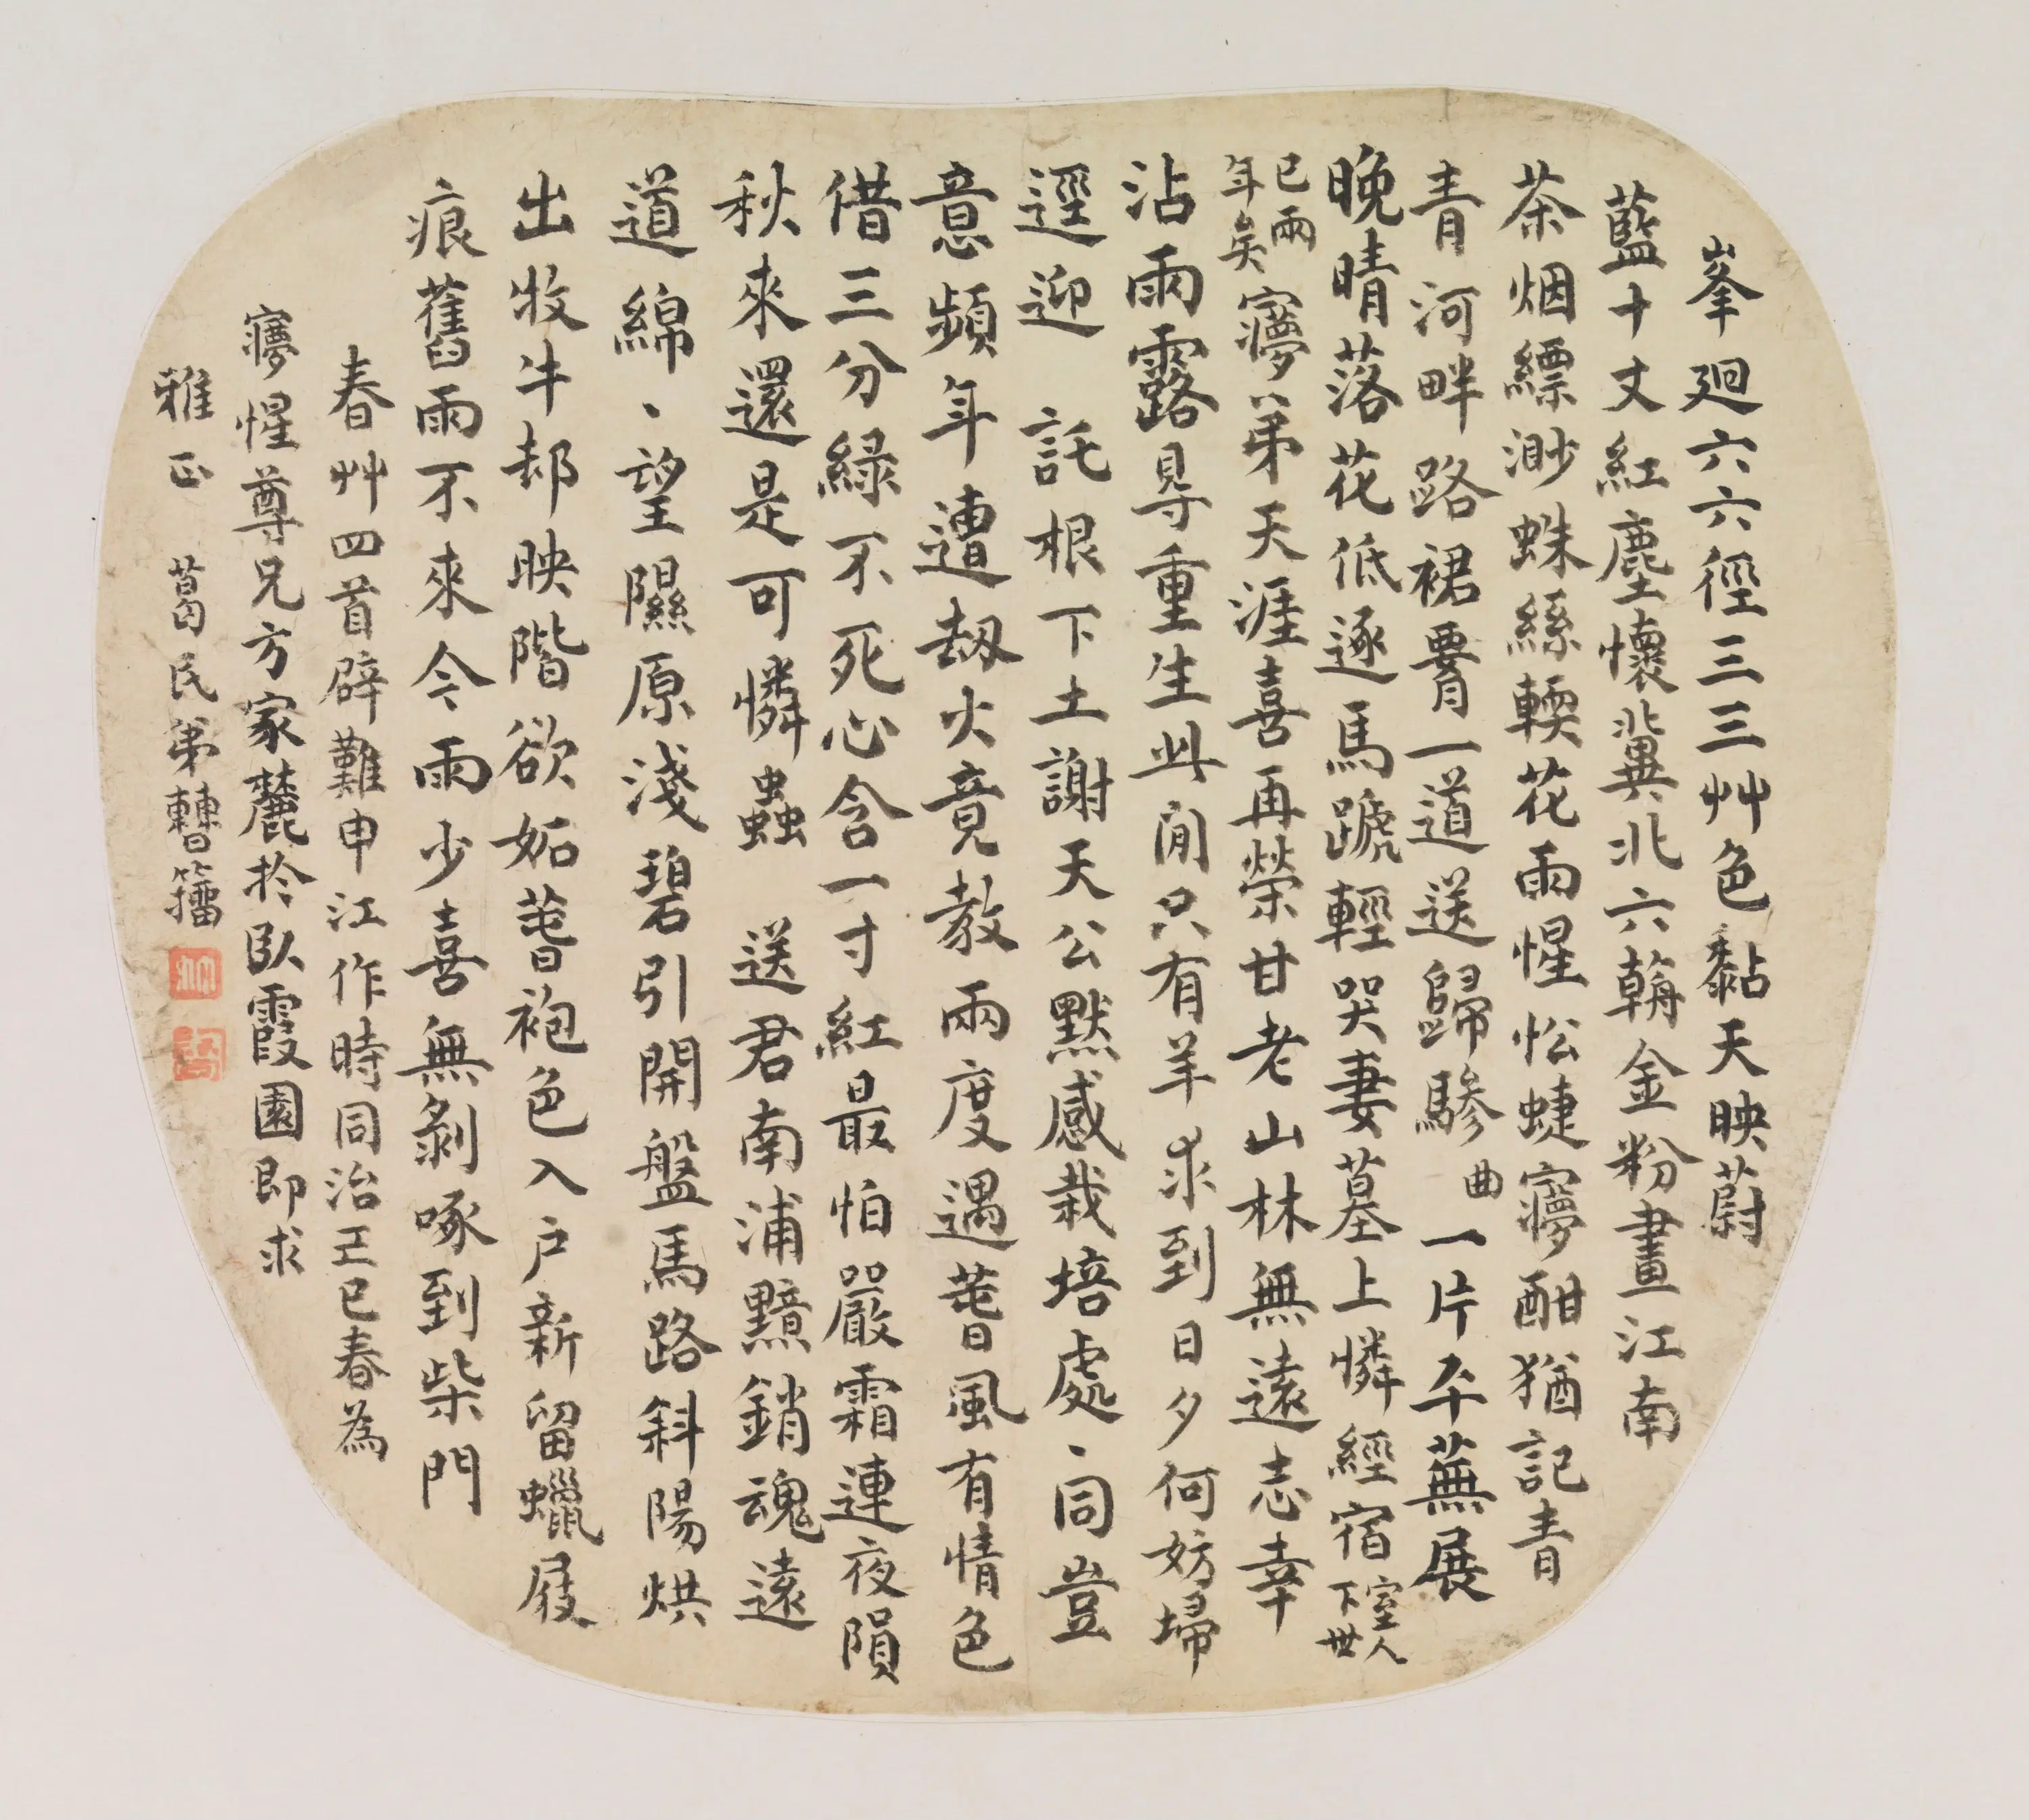 峯廻六六徑三三艸色黏天映蔚
藍十丈紅塵懷冀北六朝金粉畫江南
茶烟縹渺蛛絲輭花雨惺忪蜨寱酣猶記青
青河畔路裙腰一道送歸驂 曲一片平蕪展
晚晴落花低逐馬蹏輕哭妻墓上憐經宿室人下世
已兩年矣寱弟天涯喜再榮甘老山林無遠志幸
沾雨露得重生此間只有羊求到日夕何妨埽
逕迎 託根下土謝天公默感栽培處、同豈
意頻年遭劫火竟教兩度遇萅風有情色
借三分綠不死心含一寸紅最怕嚴霜連夜隕
秋來還是可憐蟲 送君南浦黯銷魂遠
道綿、望隰原淺碧引開盤馬路斜陽烘
出牧牛邨映階欲妬萅袍色入戶新留蠟屐
痕舊雨不來今雨少喜無剝啄到柴門
春艸四首辟難申江作時同治己巳春為
寱惺尊兄方家麓於臥霞園即求
雅正 葛民弟